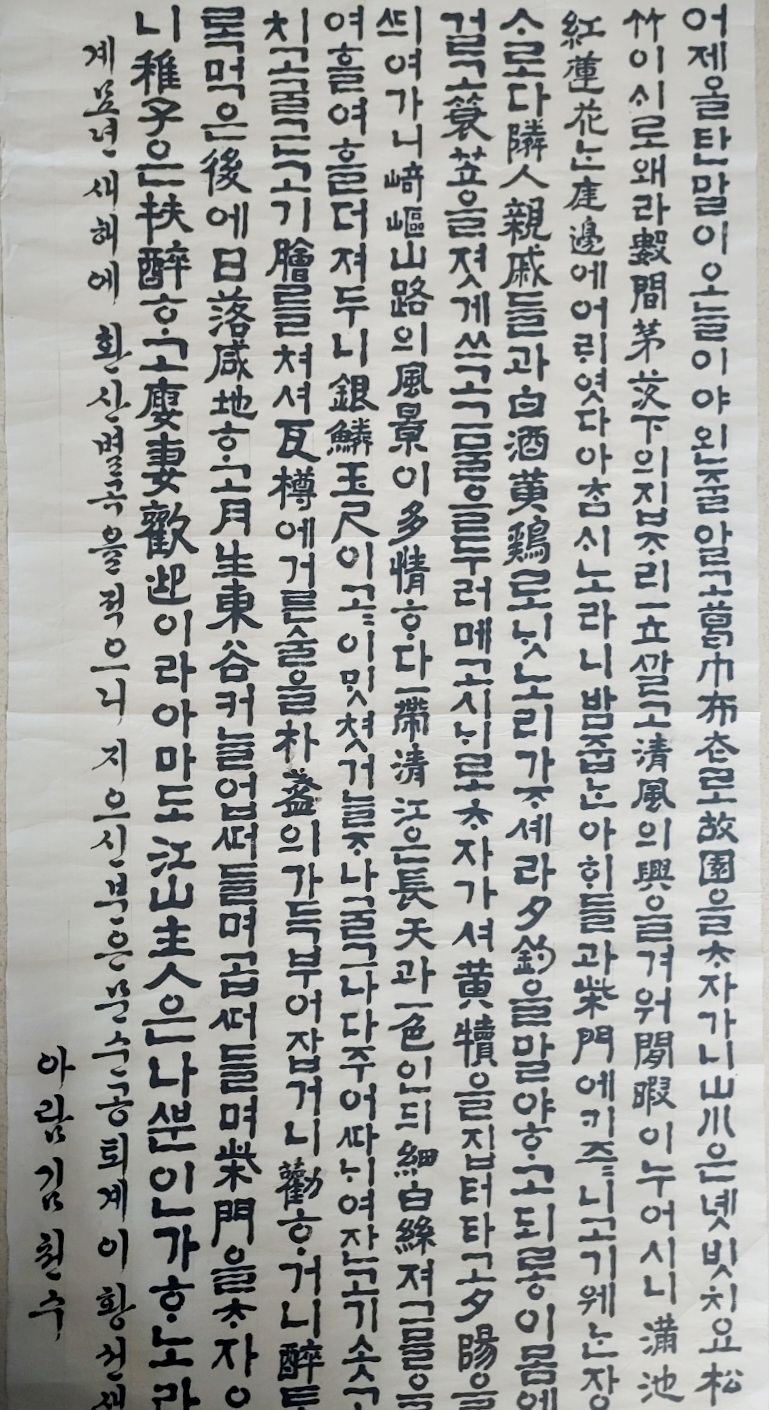 어제올탄말이오늘이야왼줄알고葛巾布衣로故園을ᄎᆞ자가니山川은녯빗치요松
竹이ᄉᆡ로왜라數間茅茨下의집ᄌᆞ리一立ᄭᆞᆯ고淸風의興을겨워閒暇이누어시니滿池
紅蓮花ᄂᆞᆫ庭邊에어ᄅᆡ엿다아ᄎᆞᆷᄉᆡ노라니밤줍ᄂᆞᆫ아ᄒᆡ들과柴門에키즐니고기웨ᄂᆞᆫ장
ᄉᆞ로다隣人親戚들과白酒黃鷄로ᄂᆡᆺ노리가ᄌᆞ셰라夕釣을말야ᄒᆞ고되롱이몸에
걸고蓑笠을졋게쓰고그물을두러메고시ᄂᆡ로ᄎᆞ자가셔黃犢을집터타고夕陽을
ᄯᅴ여가니崎嶇山路의風景이多情ᄒᆞ다一帶淸江은長天과一色인듸細白絲져그믈을
여흘여흘더져두니銀鱗玉尺이고이ᄆᆡᆺ쳣거늘ᄌᆞ나굴그나다주어ᄯᅡᄂᆡ여잔고기솟고
치고굴근고기膾를쳐셔瓦樽에거른술을朴盞의가득부어잡거니勸ᄒᆞ거니醉토
록먹은後에日落咸地ᄒᆞ고月生東谷커늘업ᄯᅥ들며곱ᄯᅥ들며柴門을ᄎᆞ자오
니稚子은扶醉ᄒᆞ고廋妻歡迎이라아마도江山主人은나ᄲᅮᆫ인가ᄒᆞ노라
계묘년 새해에 환산별곡을 적으니 지으신 분은 문순공 퇴계 이황 선생
아람 김